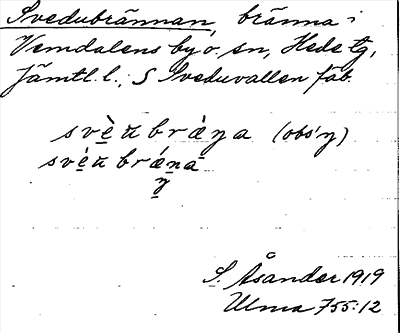 Svedubrännan, bränna i
Vemdalens by o. sn, Hede tg,
Jämtl. l.; S Sveduvallen fäb.
(obs! ŋ)
ŋ
S. Åsander 1919
Ulma 755:12